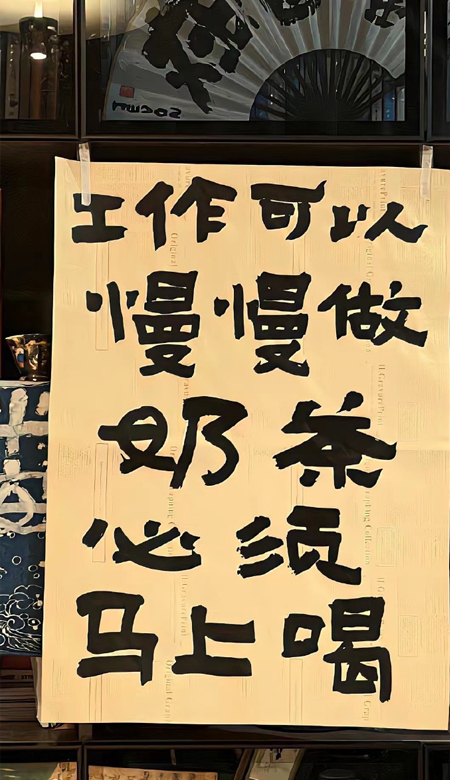 工作可以
慢慢做
奶茶
必须
马上喝